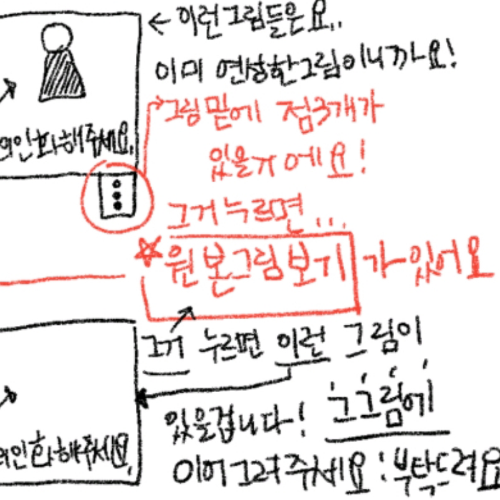 ←이런그림들은요..
이미 연성한그림이니까요!
의인화해주세요.
그림밑에 점3개가
있을거에요!
그거누르면...
★원본그림보기가있어요
그거 누르면 이런 그림이
있을겁니다! 그그림에
의인화해주세요.
이어그려주세요!부탁드려요